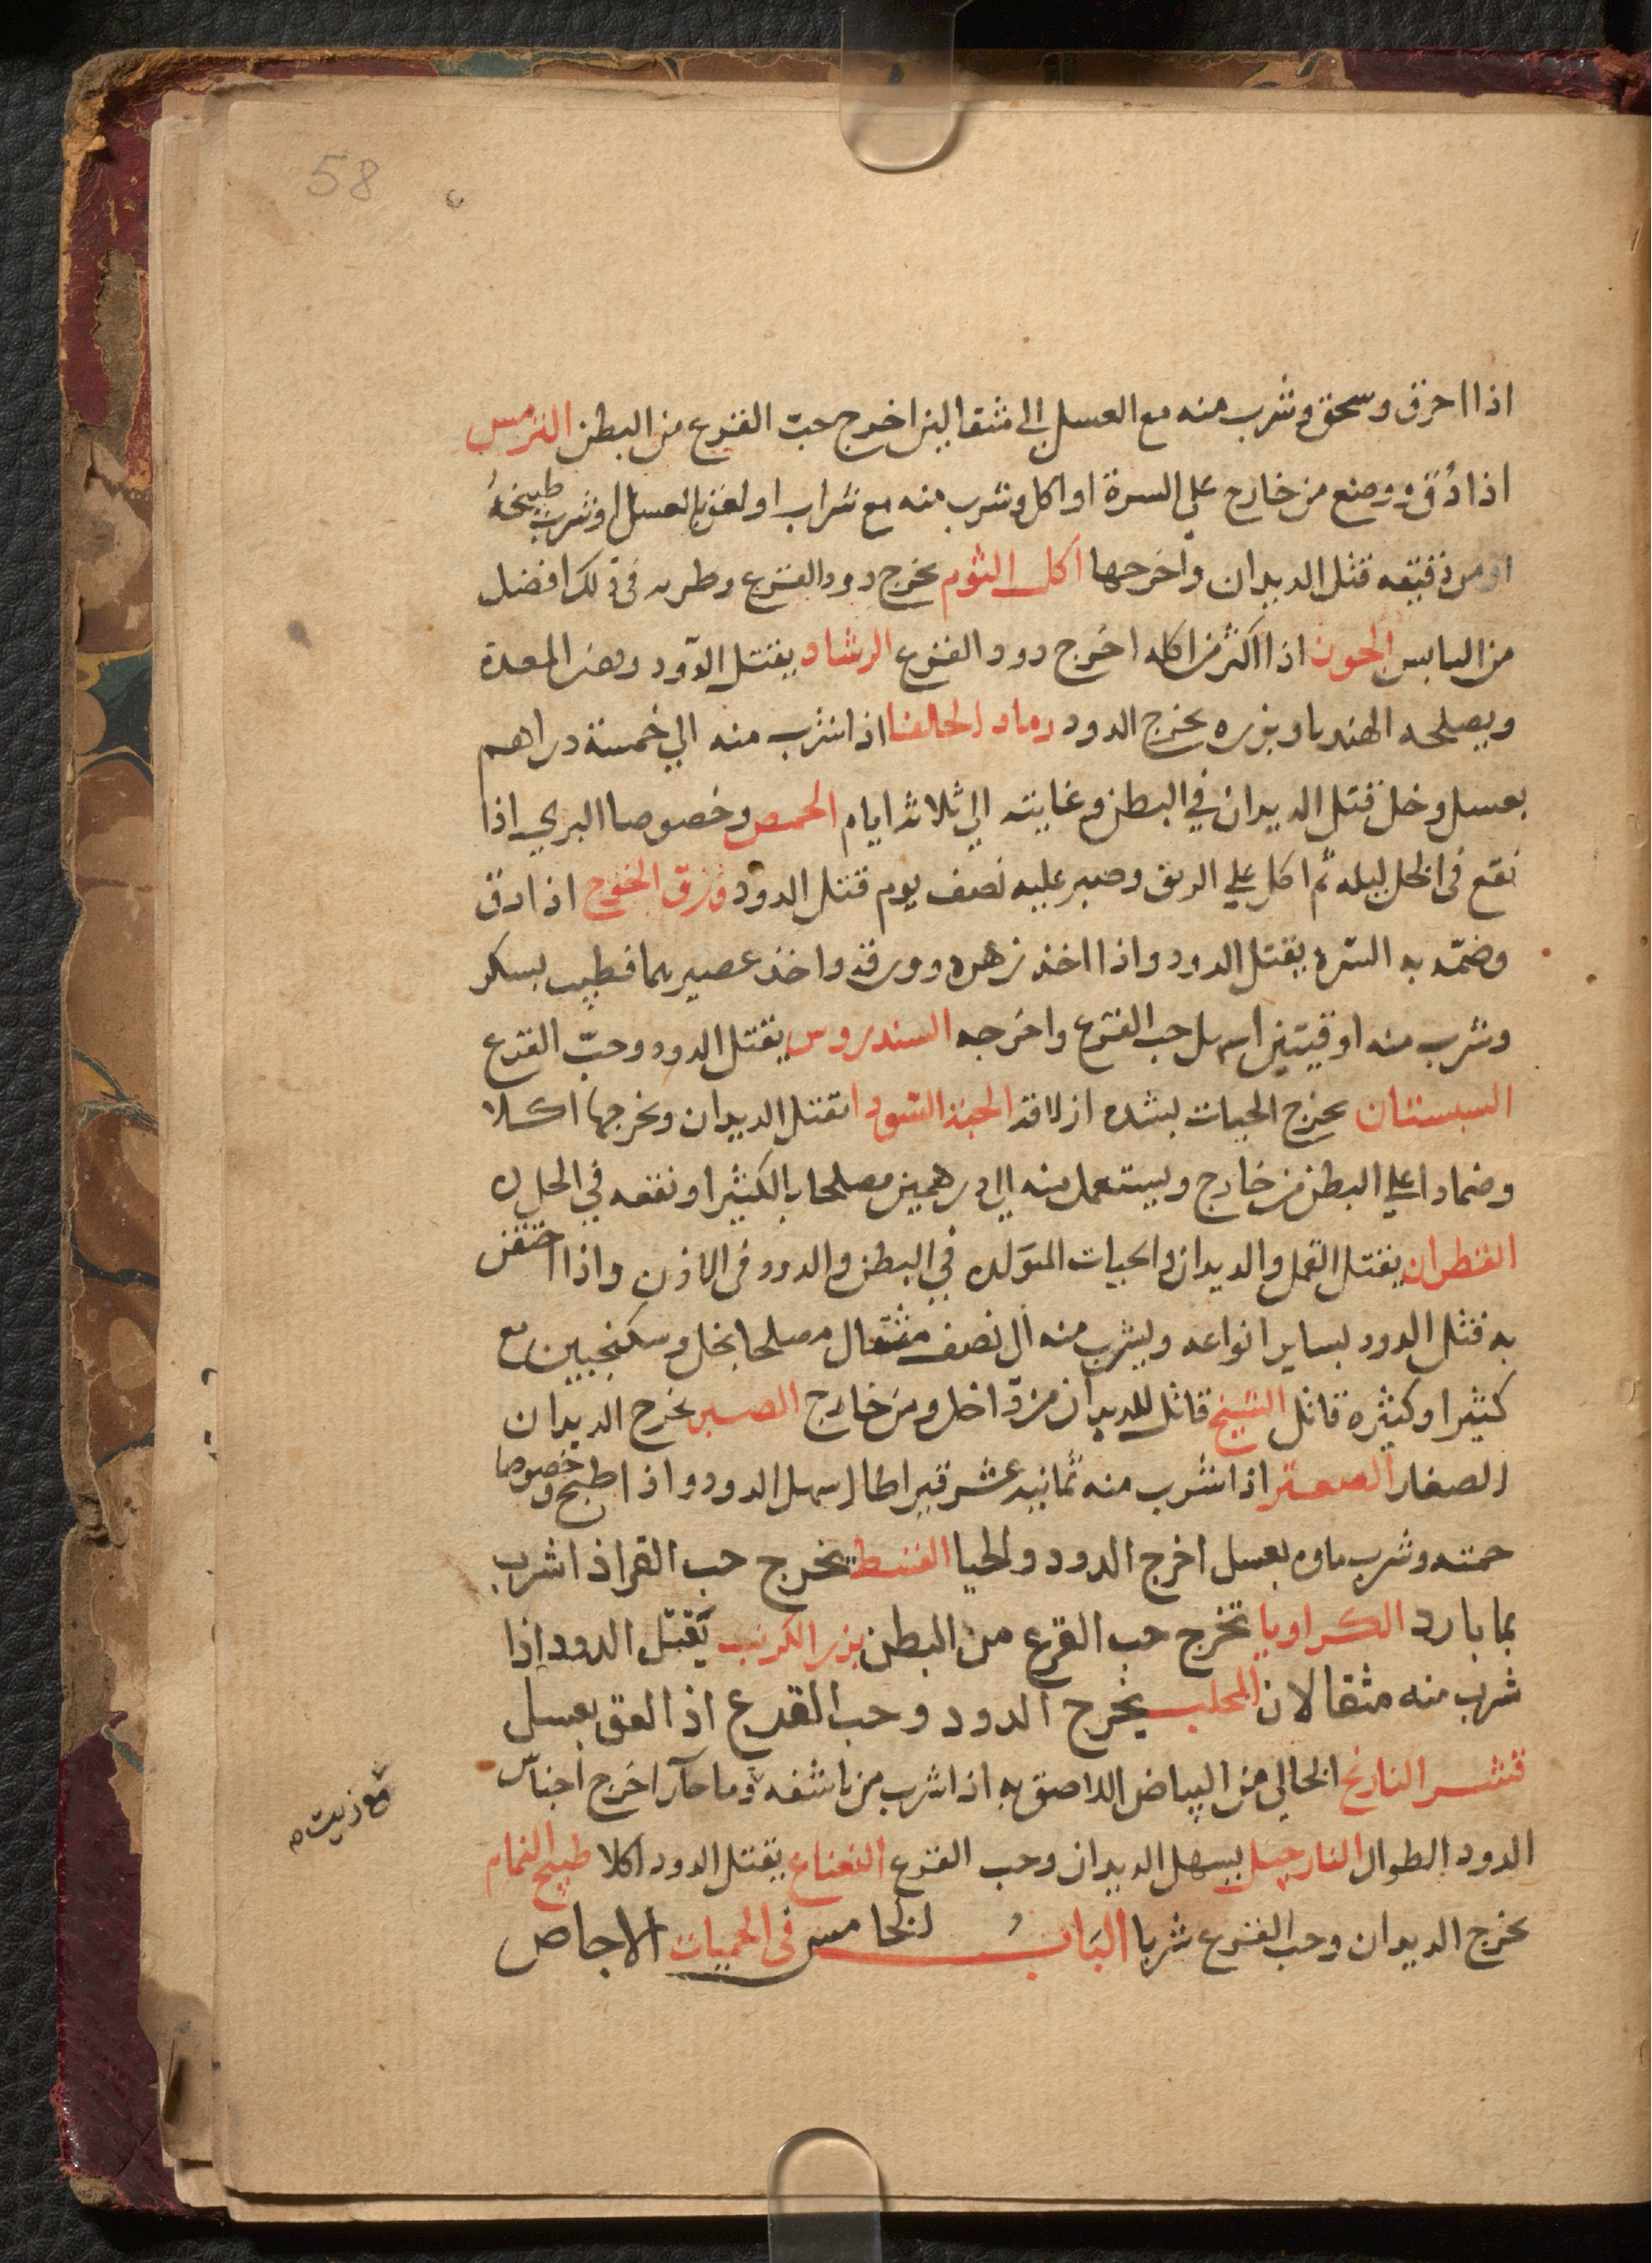 58
اذا احرق وسحق وشرب منه مع العسل الى مثقالين اخرج حبّ القرع من البطن الترمس
اذا دُق ووضع من خارج على السرة او اكل وشرب منه مع شراب او لعق بالعسل او شرب طبيخهُ
او من دقيقه قتل الديدان واخرجها اكل الثوم يخرج دود القرع وطريه في ذلك افضل
من اليابس الجوز اذا اكثر من اكله اخرج دود القرع الرشاد يقتل الدود ويضر المعدة
ويصلحه الهندبا وبزره يخرج الدود رماد الحلفا اذا شرب منه الي خمسة دراهم
بعسل وخل قتل الديدان في البطن وغايته الي ثلاثة ايام الحمص وخصوصا البري اذا
نقع في الخل ليله ثم اكل على الريق وصبر عليه نصف يوم قتل الدود ورق الخوخ اذا دق
وضمد به السره يقتل الدود واذا اخذ زهره وورقه واخذ عصيرهما فطيب بسكر
وشرب منه اوقيتين اسهل حب القرع واخرجه السندروس يقتل الدود وحبّ القرع
السبستان يخرج الحيات بشده ازلاقه الحبة السودا تقتل الديدان وتخرجها اكلا
وضمادا على البطن من خارج ويستعمل منه الي درهمين مصلحا بالكثيرا ونقعه في الخل
القطران يقتل القمل والديدان والحيات المتولده في البطن والدود في الاذن واذا احتقن
به قتل الدود بساير انواعه ويشرب منه الى نصف مثقال مصلحا بخل وسكنجبين مع
كثيرا وكثيره قاتل الشيح قاتل للديدان من داخل ومن خارج الصبر يخرج الديدان
الصغار الصعتر اذا شرب منه ثمانيه عشر قيراطا اسهل الدود واذا طبخ وخصوصا
حمته وشرب ماوه بعسل اخرج الدود والحيا القسط يخرج حب القر اذا شرب
بما بارد الكراويا تخرج حب القرع من البطن بزر الكرنب يقتل الدود اذا
شرب منه مثقالان المحلب يخرج الدود وحب القرع اذا لعق بعسل
قشر النارنج الخالي من البياض اللاصق به اذا شرب من ناشفه وما حار اخرج اجناس
مع زيت
الدود الطوال النارجيل يسهل الديدان وحب القرع النعناع يقتل الدود اكلا طبيخ النمام
يخرج الديدان وحب القرع شربا البَابُ الخامس في الحميات الاجاص